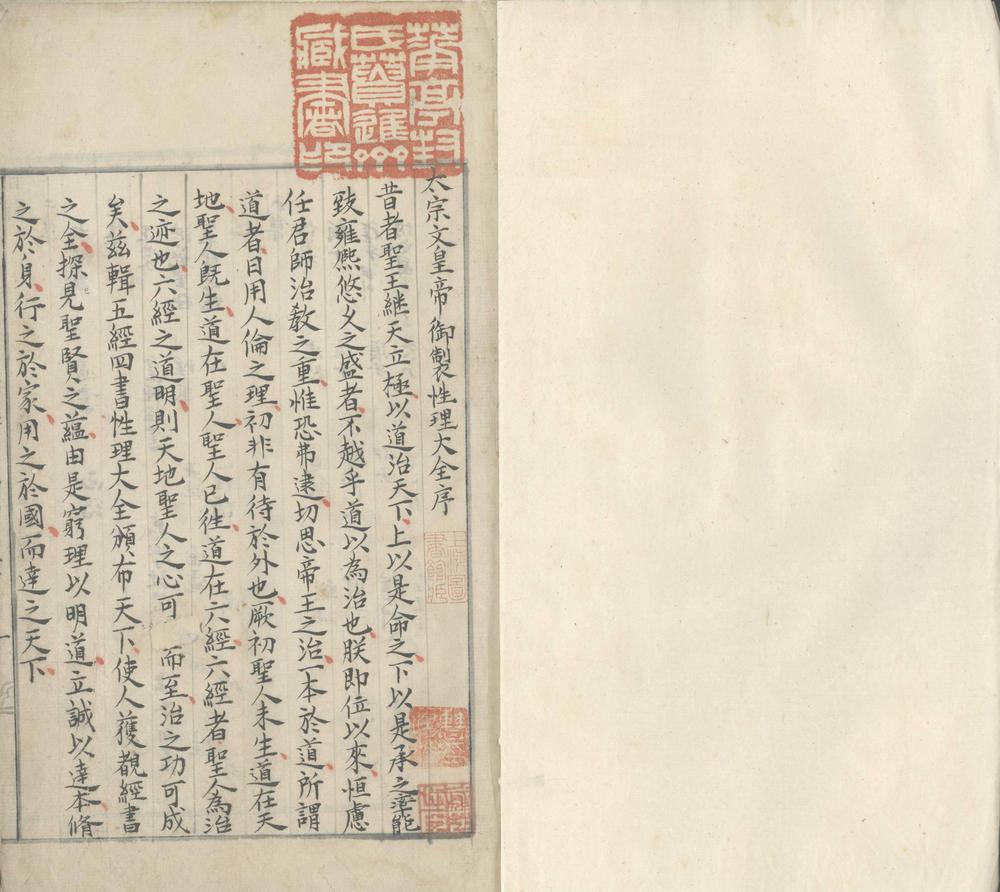 太宗文皇帝御製性理大全序
昔者聖王継天立極以道治天下上以是命之下以是承之遂能
致雍熈悠久之盛者不越乎道以為治也朕即位以來恒慮
任君師治教之重惟恐弗逮切思帝王之治一本於道所謂
道者日用人倫之理初非有待於外也厥初聖人未生道在天
地聖人既生道在聖人聖人已徃道在六經六經者聖人為治
之迹也六經之道明則天地聖人之心可 而至治之功可成
矣茲輯五經四書性理大全頒布天下使人獲覩經書
之全探見聖賢之蘊由是窮理以明道立誠以達本脩
之於身行之於家用之於國而達之天下
華亭封
氏簣進
藏書印